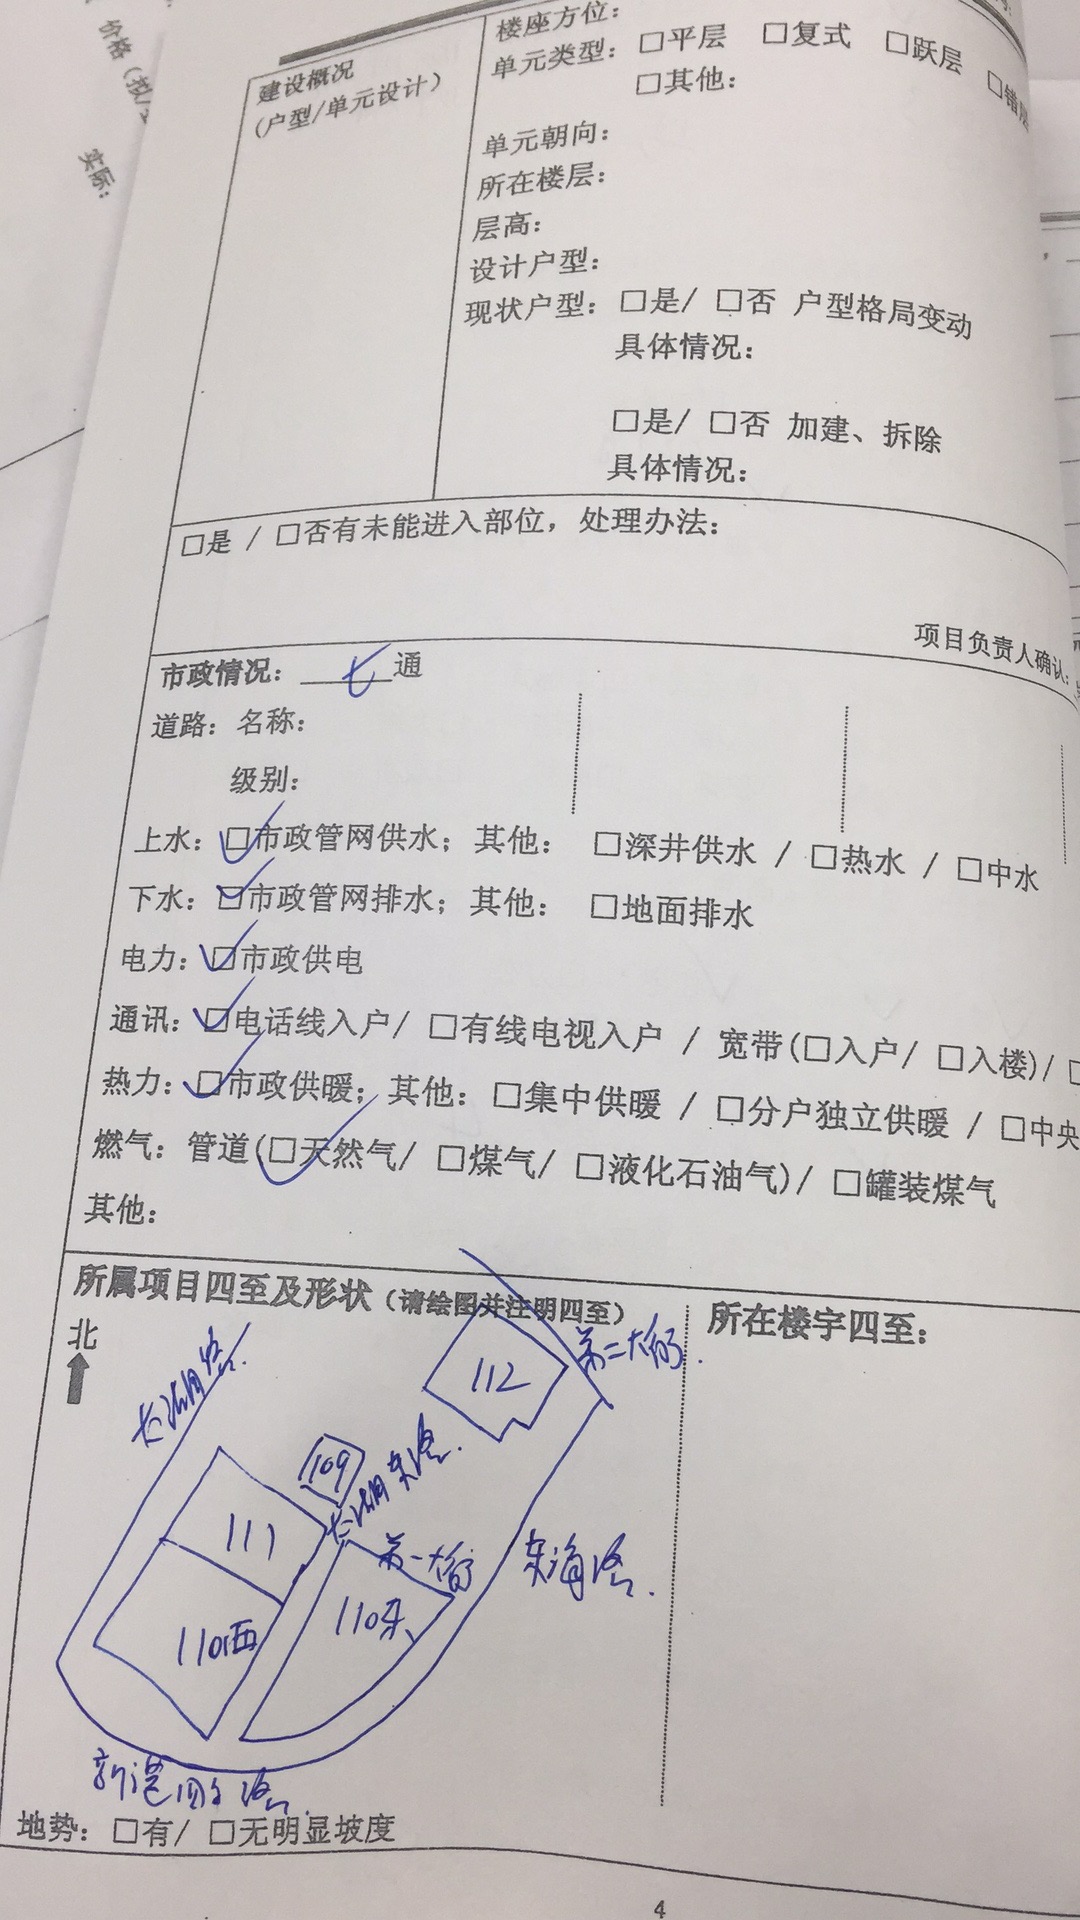 价格（拟/
实际：
建设概况
（户型/单元设计）
楼座方位：
单元类型：□平层 □复式 □跃层 □错层
□其他：
单元朝向：
所在楼层：
层高：
设计户型：
现状户型：□是/ □否 户型格局变动
具体情况：
□是/ □否 加建、拆除
具体情况：
□是 / □否有未能进入部位，处理办法：
项目负责人确认：
市政情况：七通
道路：名称：
级别：
上水：☑市政管网供水；其他： □深井供水 / □热水 / □中水
下水：☑市政管网排水；其他： □地面排水
电力：☑市政供电
通讯：☑电话线入户/ □有线电视入户 / 宽带(□入户/ □入楼)/ □
热力：☑市政供暖；其他：□集中供暖 / □分户独立供暖 / □中央
燃气：管道(☑天然气/ □煤气/ □液化石油气)/ □罐装煤气
其他：
所属项目四至及形状（请绘图并注明四至）
所在楼宇四至：
北
第二大街.
112
109
111
第一大街
东海路.
110西
110东
地势：□有/ □无明显坡度
4